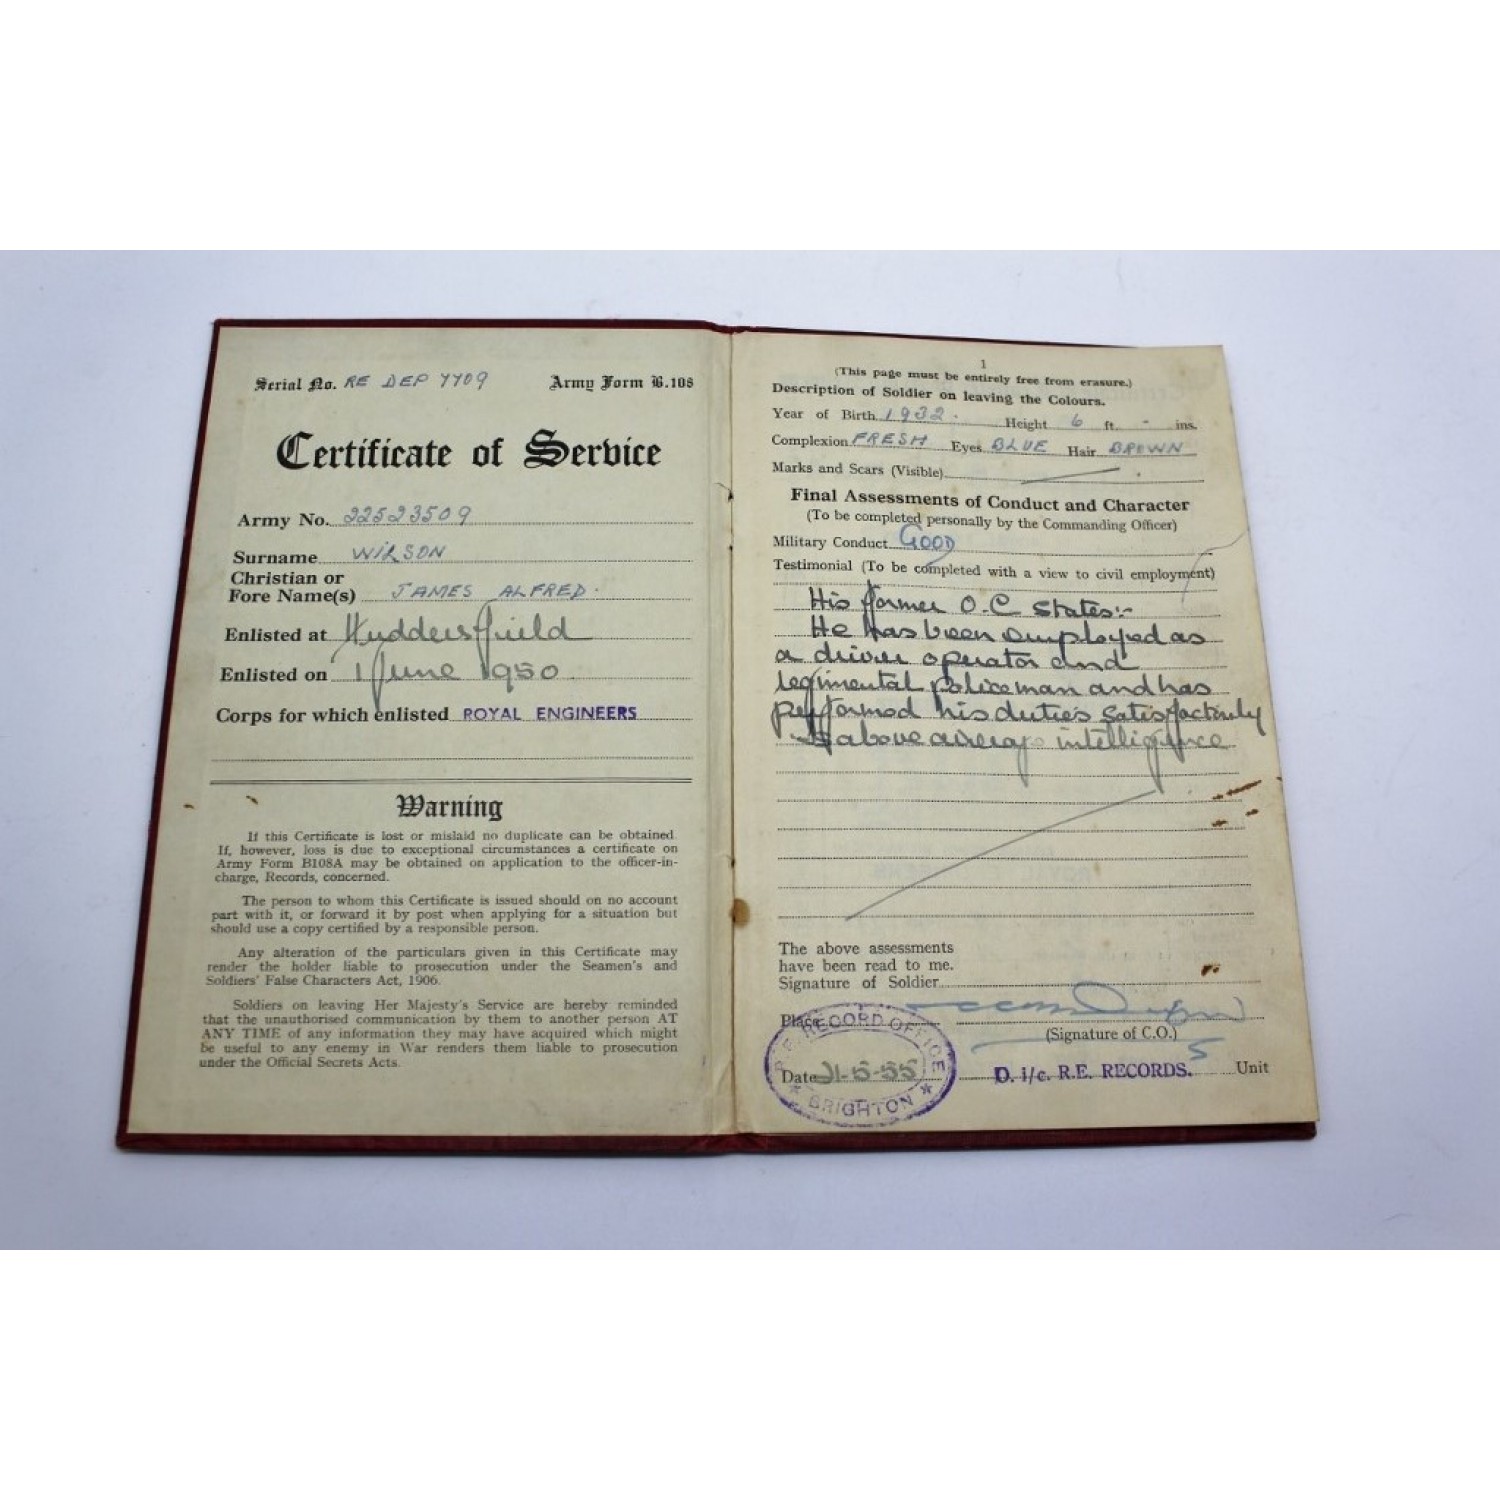 Serial No. RE DEP 7709 Army Form B.108
Certificate of Service
Army No. 22523509
Surname WILSON
Christian or
Fore Name(s) JAMES ALFRED.
Enlisted at Huddersfield
Enlisted on 1 June 1950.
Corps for which enlisted ROYAL ENGINEERS
Warning
If this Certificate is lost or mislaid no duplicate can be obtained.
If, however, loss is due to exceptional circumstances a certificate on
Army Form B108A may be obtained on application to the officer-in-
charge, Records, concerned.
The person to whom this Certificate is issued should on no account
part with it, or forward it by post when applying for a situation but
should use a copy certified by a responsible person.
Any alteration of the particulars given in this Certificate may
render the holder liable to prosecution under the Seamen's and
Soldiers' False Characters Act, 1906.
Soldiers on leaving Her Majesty's Service are hereby reminded
that the unauthorised communication by them to another person AT
ANY TIME of any information they may have acquired which might
be useful to any enemy in War renders them liable to prosecution
under the Official Secrets Acts.
1
(This page must be entirely free from erasure.)
Description of Soldier on leaving the Colours.
Year of Birth 1932. Height 6 ft. - ins.
Complexion FRESH Eyes BLUE Hair BROWN
Marks and Scars (Visible)
Final Assessments of Conduct and Character
(To be completed personally by the Commanding Officer)
Military Conduct GOOD
Testimonial (To be completed with a view to civil employment)
His former O.C states:-
He has been employed as
a driver operator and
regimental policeman and has
performed his duties satisfactorily
Is above average intelligence
The above assessments
have been read to me.
Signature of Soldier
Place
(Signature of C.O.)
R.E. RECORD OFFICE
Date 21-5-55 O. i/c. R.E. RECORDS. Unit
BRIGHTON